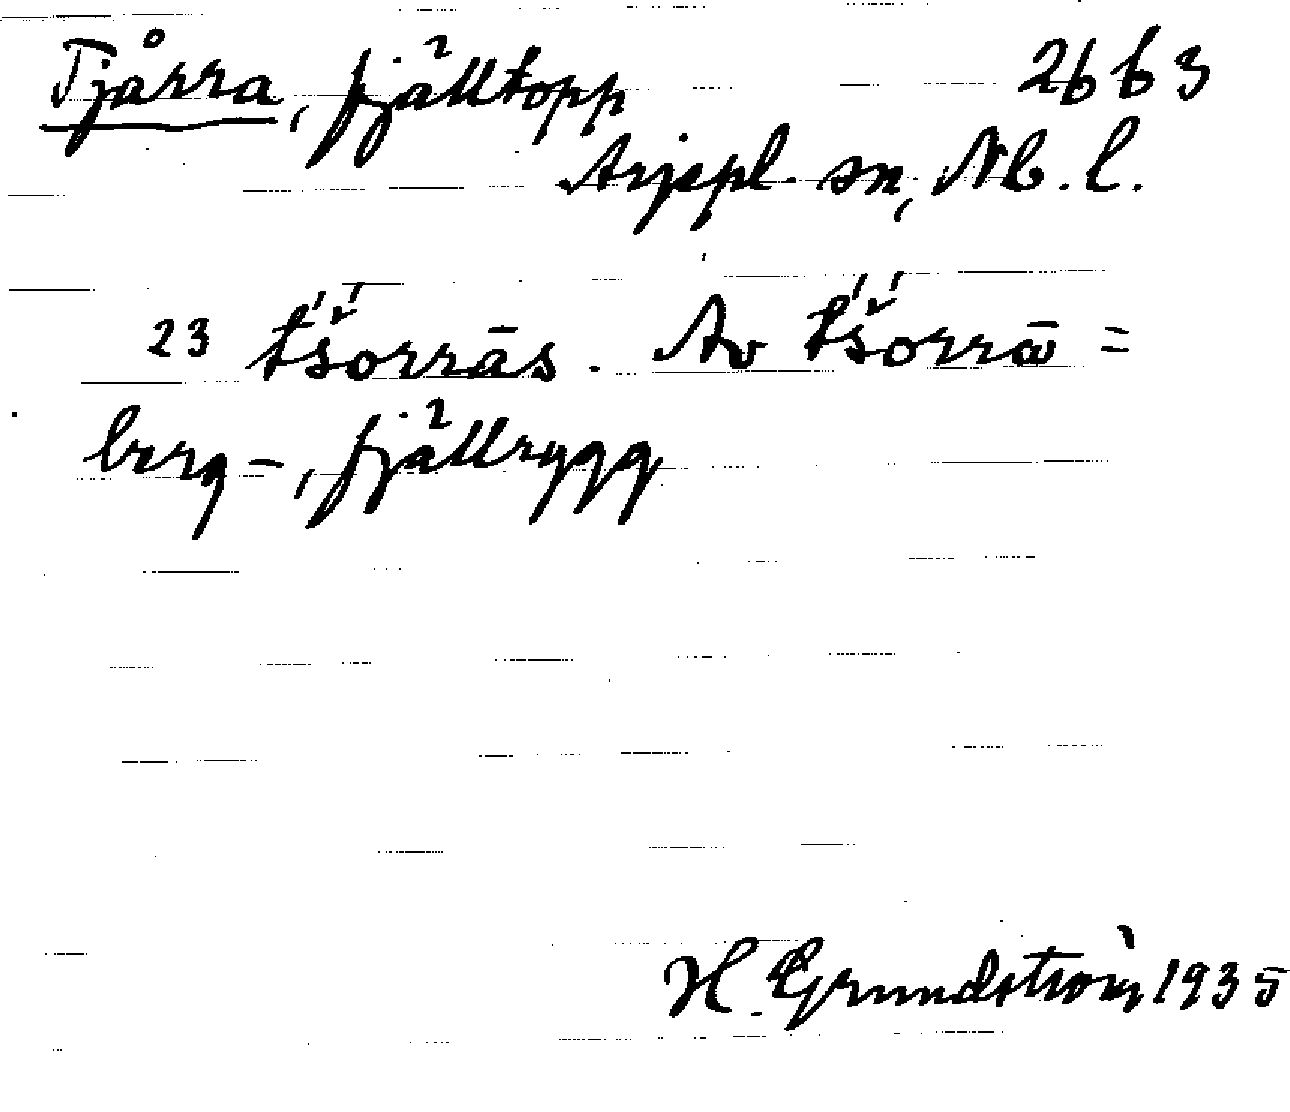 Tjårra, fjälltopp 2663
Arjepl. sn, Nb. l.
23 t́šorrās. Av t́šorrā =
berg-, fjällrygg
H. Grundström 1935